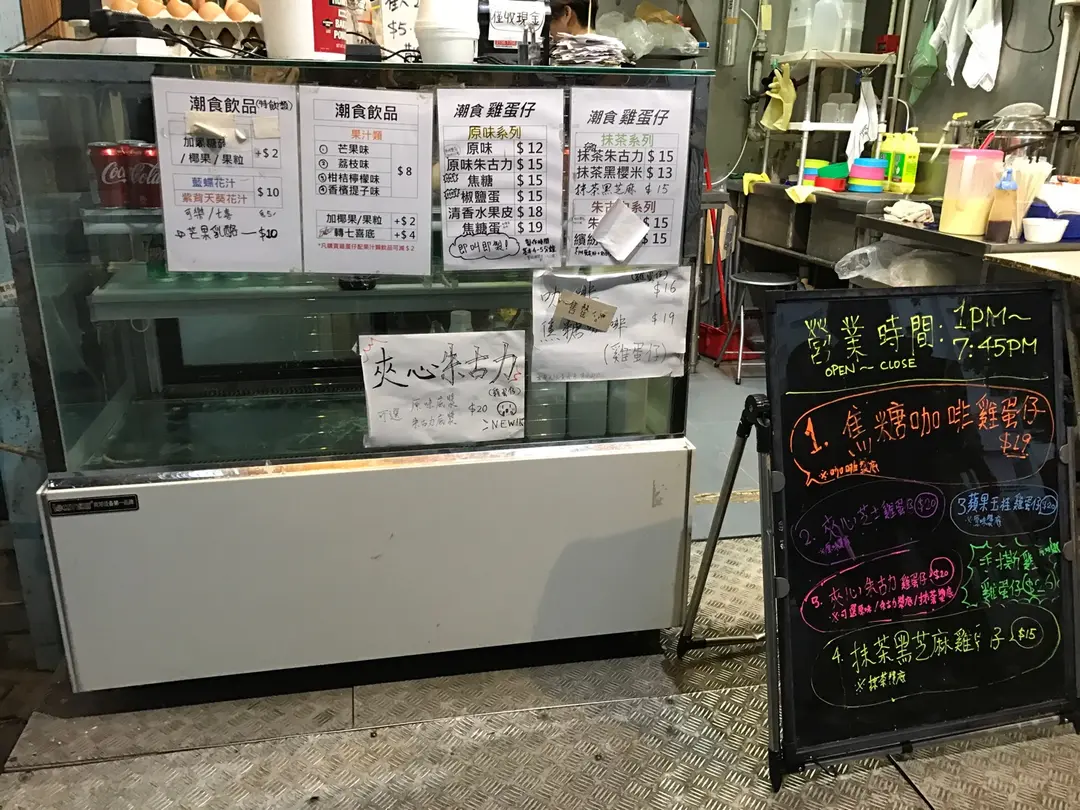 $5
僅收現金
Coca-Cola
潮食飲品(特飲類)
/ 椰果 / 果粒
+ $ 2
藍蝶花汁
紫背天葵花汁
$ 10
可樂/七喜
芒果乳酪 — $10
潮食飲品
果汁類
① 芒果味
② 荔枝味
③ 柑桔檸檬味
④ 香檳提子味
$ 8
加椰果/果粒 +$ 2
轉七喜底 +$ 4
潮食 雞蛋仔
原味系列
原味 $ 12
原味朱古力 $ 15
焦糖 $ 15
椒鹽蛋 $ 15
清香水果皮 $ 18
焦糖蛋 $ 19
即叫即製!
製作時間
需4-5分鐘
潮食 雞蛋仔
抹茶系列
抹茶朱古力 $ 15
抹茶黑櫻米 $ 13
抹茶黑芝麻 $ 15
$ 15
$ 15
咖啡 (雞蛋仔) $16
焦糖 啡 $19
(雞蛋仔)
夾心朱古力
(雞蛋仔)
可選 原味底漿
朱古力底漿
$20
NEW!!
營業時間: 1PM~
7:45PM
OPEN ~ CLOSE
1. 焦糖咖啡雞蛋仔
$19
2. 夾心芝士雞蛋仔 $20
3 蘋果玉桂雞蛋仔 $20
5. 夾心朱古力雞蛋仔 $20
手撕雞
雞蛋仔
4. 抹茶黑芝麻雞蛋仔 $15
※抹茶漿底